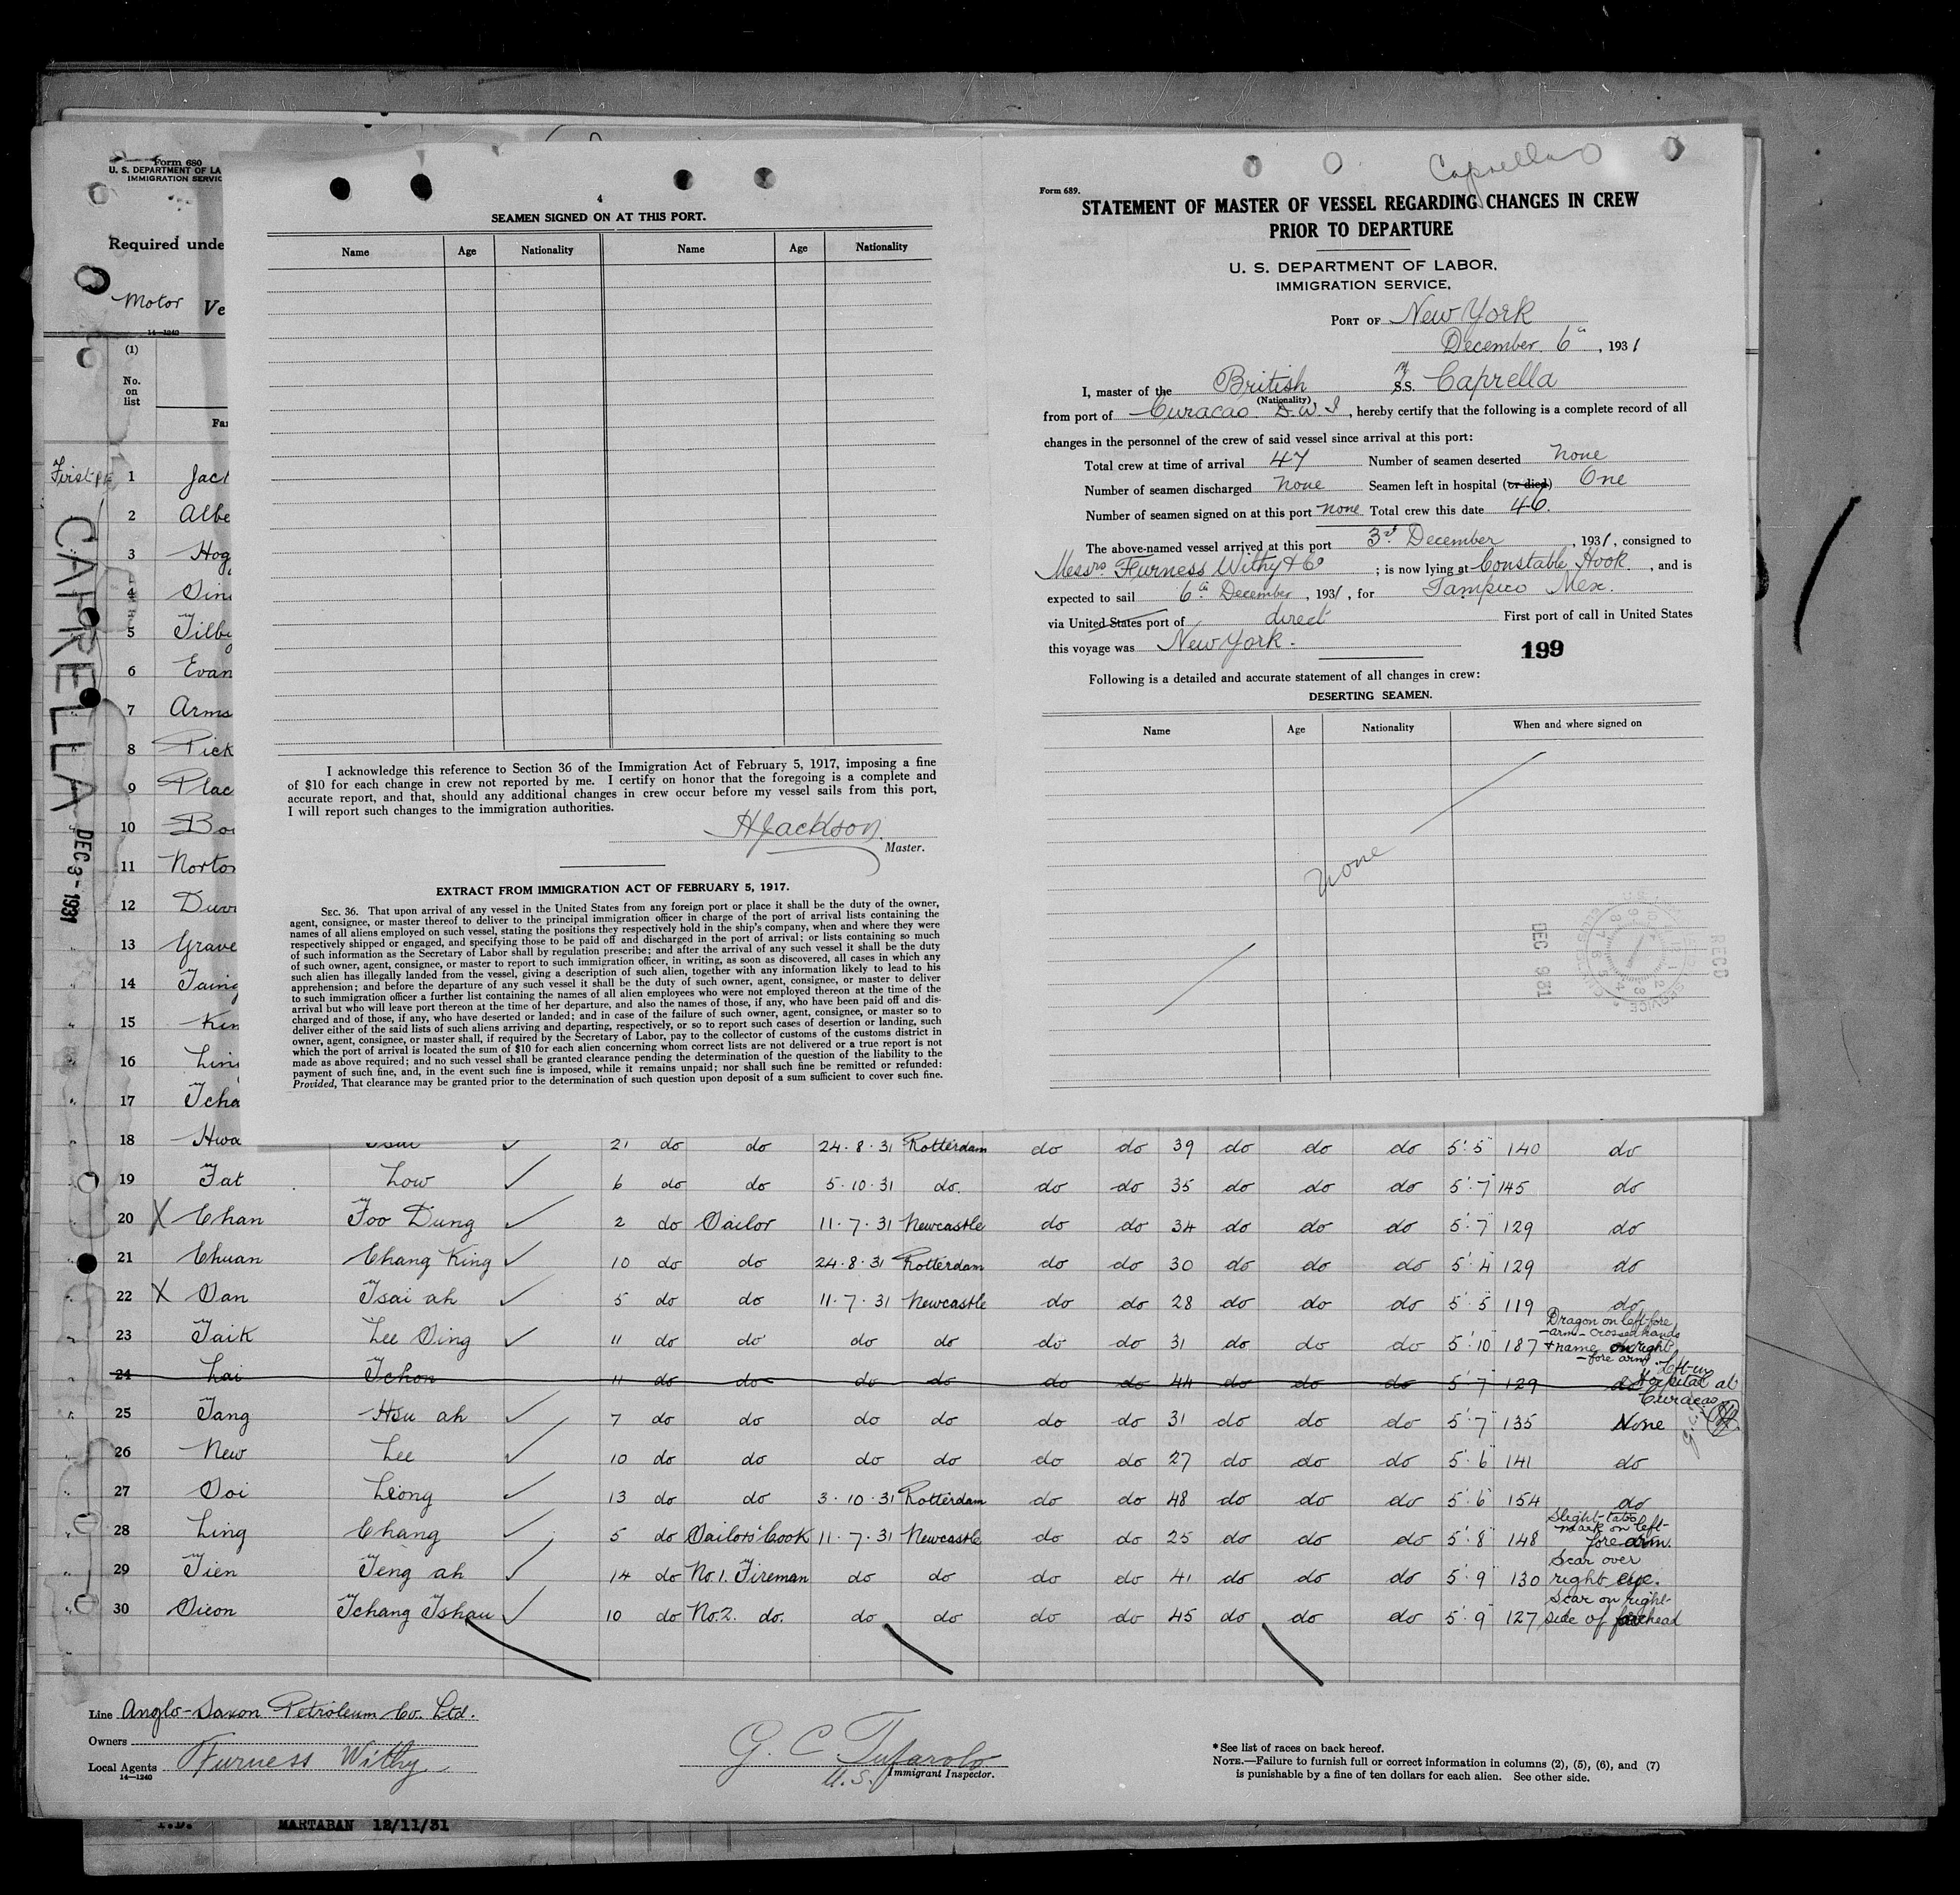 Form 680
U. S. DEPARTMENT OF LA
IMMIGRATION SERVIC
Required unde
Motor Ve
14—1240
(1)
No.
on
list
Fa
First
CAPRELLA
DEC 3 - 1931
1 Jack
2 Albe
3 Hog
4
5 Tilby
6 Evan
7 Arms
8 Pick
9 Plac
10
11 Norton
12
13 Grave
14
15
16 Ling
17 Tcha
4
SEAMEN SIGNED ON AT THIS PORT.
Name Age Nationality Name Age Nationality
I acknowledge this reference to Section 36 of the Immigration Act of February 5, 1917, imposing a fine
of $10 for each change in crew not reported by me. I certify on honor that the foregoing is a complete and
accurate report, and that, should any additional changes in crew occur before my vessel sails from this port,
I will report such changes to the immigration authorities.
HJackson
Master.
EXTRACT FROM IMMIGRATION ACT OF FEBRUARY 5, 1917.
SEC. 36. That upon arrival of any vessel in the United States from any foreign port or place it shall be the duty of the owner,
agent, consignee, or master thereof to deliver to the principal immigration officer in charge of the port of arrival lists containing the
names of all aliens employed on such vessel, stating the positions they respectively hold in the ship's company, when and where they were
respectively shipped or engaged, and specifying those to be paid off and discharged in the port of arrival; or lists containing so much
of such information as the Secretary of Labor shall by regulation prescribe; and after the arrival of any such vessel it shall be the duty
of such owner, agent, consignee, or master to report to such immigration officer, in writing, as soon as discovered, all cases in which any
such alien has illegally landed from the vessel, giving a description of such alien, together with any information likely to lead to his
apprehension; and before the departure of any such vessel it shall be the duty of such owner, agent, consignee, or master to deliver
to such immigration officer a further list containing the names of all alien employees who were not employed thereon at the time of the
arrival but who will leave port thereon at the time of her departure, and also the names of those, if any, who have been paid off and dis-
charged and of those, if any, who have deserted or landed; and in case of the failure of such owner, agent, consignee, or master so to
deliver either of the said lists of such aliens arriving and departing, respectively, or so to report such cases of desertion or landing, such
owner, agent, consignee, or master shall, if required by the Secretary of Labor, pay to the collector of customs of the customs district in
which the port of arrival is located the sum of $10 for each alien concerning whom correct lists are not delivered or a true report is not
made as above required; and no such vessel shall be granted clearance pending the determination of the question of the liability to the
payment of such fine, and, in the event such fine is imposed, while it remains unpaid; nor shall such fine be remitted or refunded:
Provided, That clearance may be granted prior to the determination of such question upon deposit of a sum sufficient to cover such fine.
Caprella
Form 689.
STATEMENT OF MASTER OF VESSEL REGARDING CHANGES IN CREW
PRIOR TO DEPARTURE
U. S. DEPARTMENT OF LABOR,
IMMIGRATION SERVICE,
PORT OF New York
December 6th, 1931
I, master of the British M S.S. Caprella
(Nationality)
from port of Curacao D.W.I, hereby certify that the following is a complete record of all
changes in the personnel of the crew of said vessel since arrival at this port:
Total crew at time of arrival 47 Number of seamen deserted None
Number of seamen discharged None Seamen left in hospital (or died) One
Number of seamen signed on at this port None Total crew this date 46.
The above-named vessel arrived at this port 3rd December, 1931, consigned to
Messrs Furness Withy & Co; is now lying at Constable Hook, and is
expected to sail 6th December, 1931, for Tampico Mex.
via United States port of direct First port of call in United States
this voyage was New York. 199
Following is a detailed and accurate statement of all changes in crew:
DESERTING SEAMEN.
Name Age Nationality When and where signed on
None
RECD
DEC 931
18 Hwa 21 do do 24.8.31 Rotterdam do do 39 do do do 5'5" 140 do
19 Fat Low 6 do do 5.10.31 do. do do 35 do do do 5'7" 145 do
20 X Chan Foo Dung 2 do Sailor 11.7.31 Newcastle do do 34 do do do 5'7" 129 do
21 Chuan Chang King 10 do do 24.8.31 Rotterdam do do 30 do do do 5'4" 129 do
22 X San Tsai ah 5 do do 11.7.31 Newcastle do do 28 do do do 5'5" 119 do
23 Taik Lee Sing 11 do do do do do do 31 do do do 5'10" 187 Dragon on left fore-arm - crossed hands + name on right fore arm
24 Lai Tchon 11 do do do do do do 44 do do do 5'7" 129 do Left in Hospital at Curacao
25 Tang Hsu ah 7 do do do do do do 31 do do do 5'7" 135 None
26 New Lee 10 do do do do do do 27 do do do 5'6" 141 do
27 Soi Leong 13 do do 3.10.31 Rotterdam do do 48 do do do 5'6" 154 do
28 Ling Chang 5 do Sailors' Cook 11.7.31 Newcastle do do 25 do do do 5'8" 148 Slight tatoo mark on left fore arm.
29 Tien Teng ah 14 do No.1. Fireman do do do do 41 do do do 5'9" 130 Scar over right eye.
30 Sieon Tchang Tshau 10 do No.2. do. do do do do 45 do do do 5'9" 127 Scar on right side of forehead
Line Anglo-Saxon Petroleum Co. Ltd.
Owners
Local Agents Furness Withy
14—1240
G. C. Tufarolo
U.S. Immigrant Inspector.
*See list of races on back hereof.
NOTE.—Failure to furnish full or correct information in columns (2), (5), (6), and (7)
is punishable by a fine of ten dollars for each alien. See other side.
MARTABAN 12/11/31